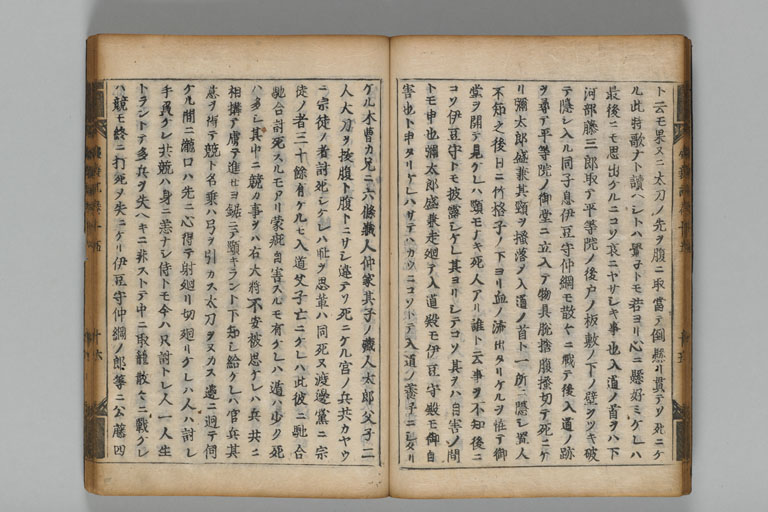 ト云モ果ヌニ太刀ノ先ヲ腹ニ取當テ倒懸リ貫テソ死ニケ
ル此時歌ナト讀ヘシトハ覺子トモ若ヨリ心ニ懸好ミケレハ
最後ニモ思出ケルニコソ哀ニヤサシキ事也入道ノ首ヲハ下
河部藤三郎取テ平等院ノ後戸ノ板敷ノ下ノ壁ヲツキ破
テ隱シ入ル同子息伊豆守仲綱モ散々ニ戰テ後入道ノ跡
ヲ尋テ平等院ノ御堂ニ立入テ物具脱捨腹掻切テ死ニケ
リ彌太郎盛兼其頸ヲ掻落ヲ入道ノ首ト一所ニ隱シ置人
不知之後日ニ竹格子ノ下ヨリ血ノ流出タリケルヲ恠テ御
堂ヲ開テ見ケレハ頸モナキ死人アリ誰ト云事ヲ不知後ニ
コソ伊豆守トモ披露シケレ其ヨリシテコソ其ヲハ自害ノ間
トモ申也彌太郎盛兼走廻テ入道殿モ伊豆守殿モ御自
害也ト申タリケレハサテハカウニコソトテ入道ノ養子ニシタリ
ケル木曽カ兄ニ六條藏人仲家其子ノ藏人太郎父子二
人太刀ヲ拔腹ト腹トニサシ違テソ死ニケル宮ノ兵共カヤウ
ニ宗徒ノ者討死シケレハ耻ヲ思輩ハ同死ヌ渡邊黨ニ宗
徒ノ者三十餘有ケルモ入道父子亡ニケレハ此彼ニ馳合
馳合討死スルモアリ蒙疵自害スルモ有ケレハ遁ハ少ク死
ハ多シ其中ニ競カ事ヲハ右大將不安被思ケレハ兵共ニ
相搆テ虜テ進セヨ鋸ニテ頸キラント下知シ給ケレハ官兵其
意ヲ得テ競ト名乗ハ弓ヲ引カス太刀ヲヌカス遶ニ廻テ伺
ケル間ニ瀧口ハ先ニ心得テ射廻リ切廻リケレハ人ハ討レ
手負ケレ共競ハ身ニ恙ナシ侍トモ今ハ只討トレ人一人生
トラントテ多兵ヲ失ヘキニ非ストテ中ニ取籠散々ニ戰ケレ
ハ競モ終ニ打死ヲ失ニケリ伊豆守仲綱ノ郎等ニ公藤四